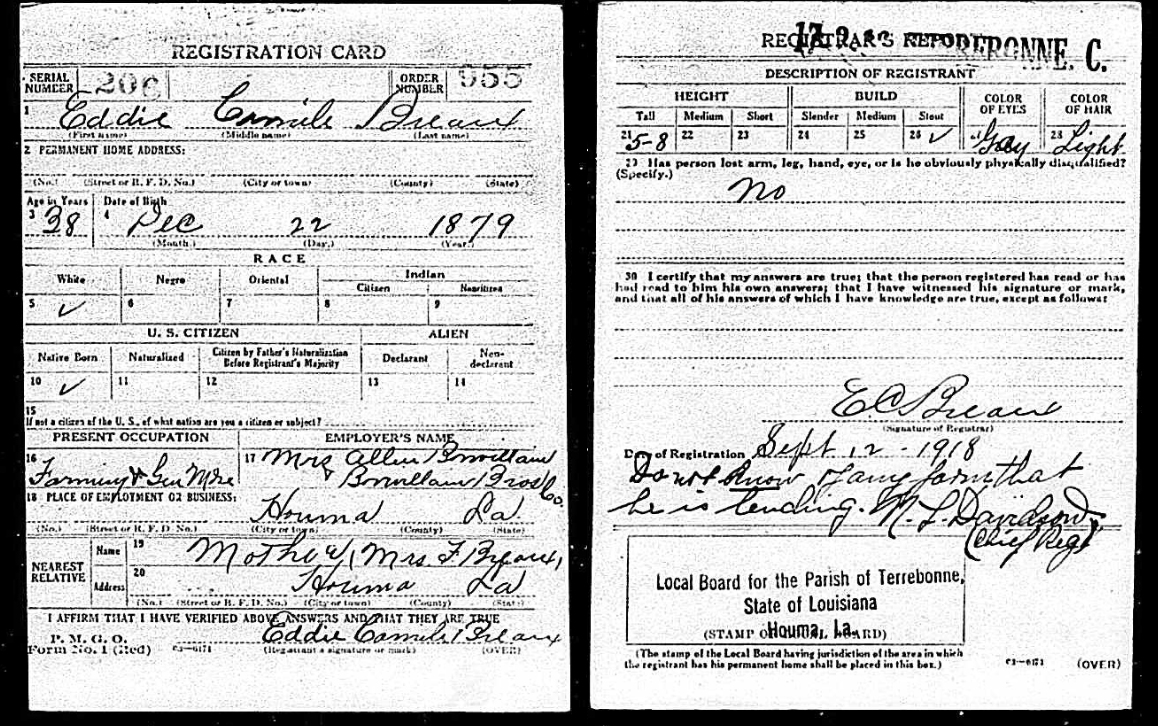 REGISTRATION CARD
SERIAL NUMBER 206 ORDER NUMBER 955
1 Eddie Camile Breaux
(First name) (Middle name) (Last name)
2 PERMANENT HOME ADDRESS:
(No.) (Street or R. F. D. No.) (City or town) (County) (State)
Age in Years Date of Birth
3 38 4 Dec 22 1879
(Month.) (Day.) (Year.)
RACE
White Negro Oriental Indian
Citizen Noncitizen
5 ✓ 6 7 8 9
U. S. CITIZEN ALIEN
Native Born Naturalized Citizen by Father's Naturalization Before Registrant's Majority Declarant Non-declarant
10 ✓ 11 12 13 14
15
If not a citizen of the U. S., of what nation are you a citizen or subject?
PRESENT OCCUPATION EMPLOYER'S NAME
16 Farming & Gen Mdse 17 Mrs Allen Bonvillain
Bonvillain Bros Co.
18 PLACE OF EMPLOYMENT OR BUSINESS:
Houma La
(No.) (Street or R. F. D. No.) (City or town) (County) (State)
NEAREST RELATIVE
Name 19 Mother, Mrs F Breaux,
Address 20 Houma La
(No.) (Street or R. F. D. No.) (City or town) (County) (State)
I AFFIRM THAT I HAVE VERIFIED ABOVE ANSWERS AND THAT THEY ARE TRUE
P. M. G. O.
Form No. 1 (Red) c3—6171 Eddie Camile Breaux
(Registrant's signature or mark) (OVER)
REGISTRAR'S REPORT
C.
DESCRIPTION OF REGISTRANT
HEIGHT BUILD COLOR OF EYES COLOR OF HAIR
Tall Medium Short Slender Medium Stout
21 5-8 22 23 24 25 26 ✓ 27 Gray 28 Light
29 Has person lost arm, leg, hand, eye, or is he obviously physically disqualified?
(Specify.)
No
30 I certify that my answers are true; that the person registered has read or has
had read to him his own answers; that I have witnessed his signature or mark,
and that all of his answers of which I have knowledge are true, except as follows:
E C Breaux
(Signature of Registrar)
Date of Registration Sept 12 - 1918
Do not know of any farm that
he is tending. Davidson,
Chief Reg
Local Board for the Parish of Terrebonne,
State of Louisiana
Houma, La.
(STAMP OF LOCAL BOARD)
(The stamp of the Local Board having jurisdiction of the area in which
the registrant has his permanent home shall be placed in this box.)
c3—6171 (OVER)